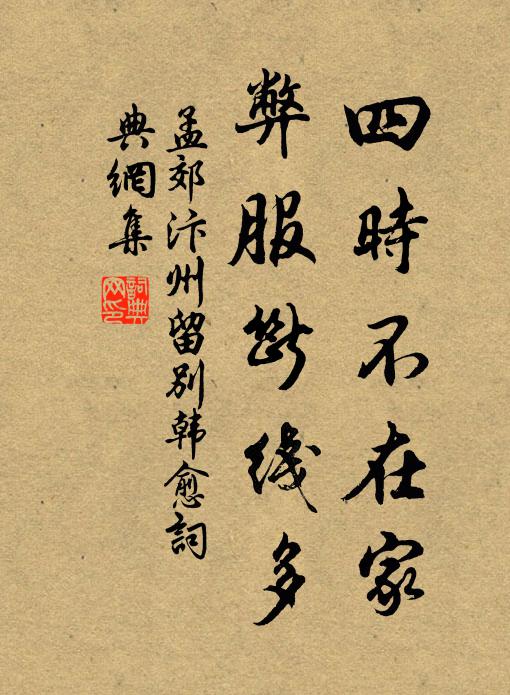 四時不在家
弊服斷綫多
孟郊汴州留别韩愈詞
典網集
詞典
网印